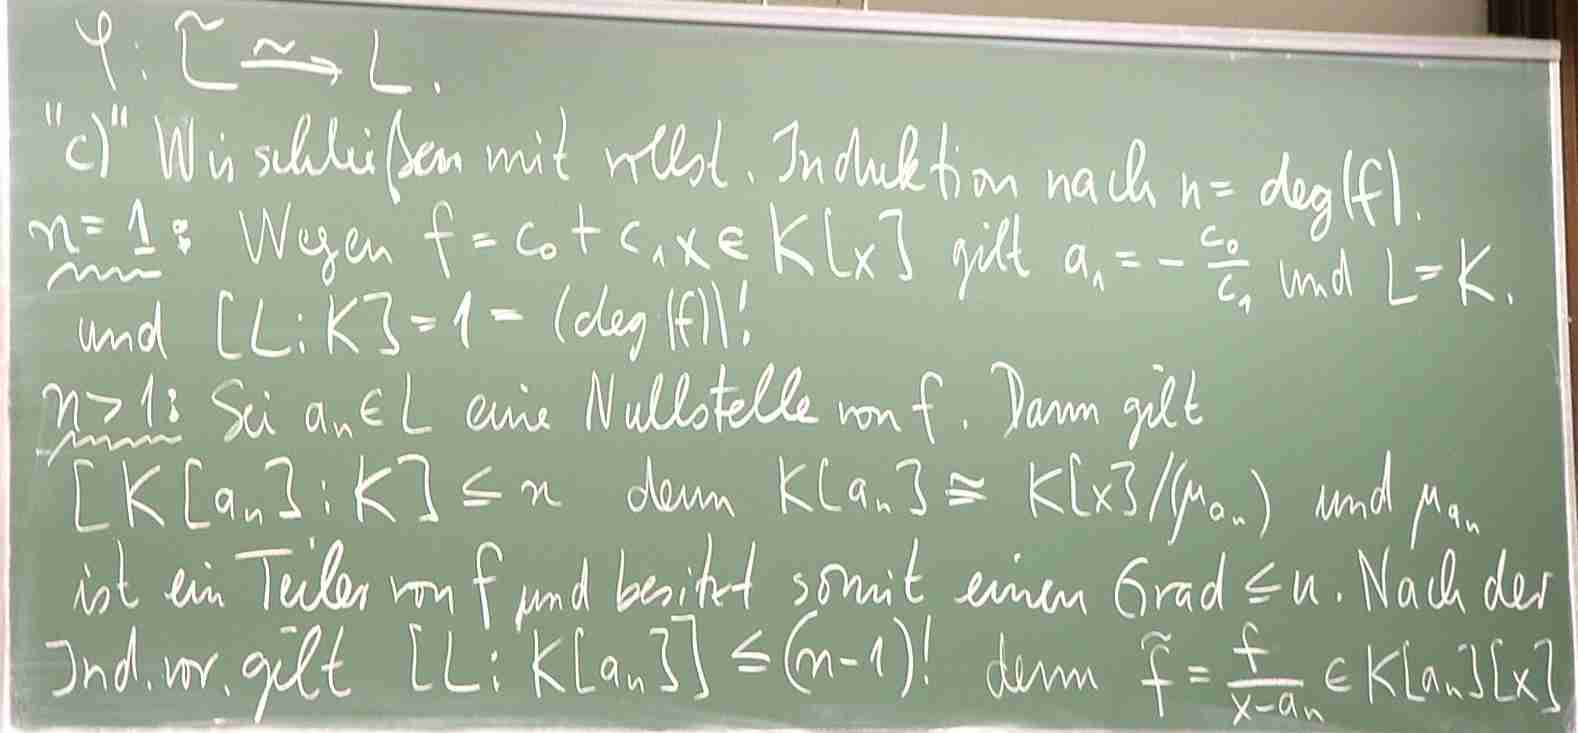 φ: L̃ ⥲ L.
"c)" Wir schließen mit vollst. Induktion nach n = deg(f).
n = 1: Wegen f = c₀ + c₁x ∈ K[x] gilt a₁ = - c₀/c₁ und L = K.
und [L:K] = 1 = (deg(f))!
n > 1: Sei aₙ ∈ L eine Nullstelle von f. Dann gilt
[K[aₙ]:K] ≤ n denn K[aₙ] ≅ K[x]/(μₐₙ) und μₐₙ
ist ein Teiler von f und besitzt somit einen Grad ≤ n. Nach der
Ind.vor. gilt [L:K[aₙ]] ≤ (n-1)! denn f̃ = f/(x-aₙ) ∈ K[aₙ][x]